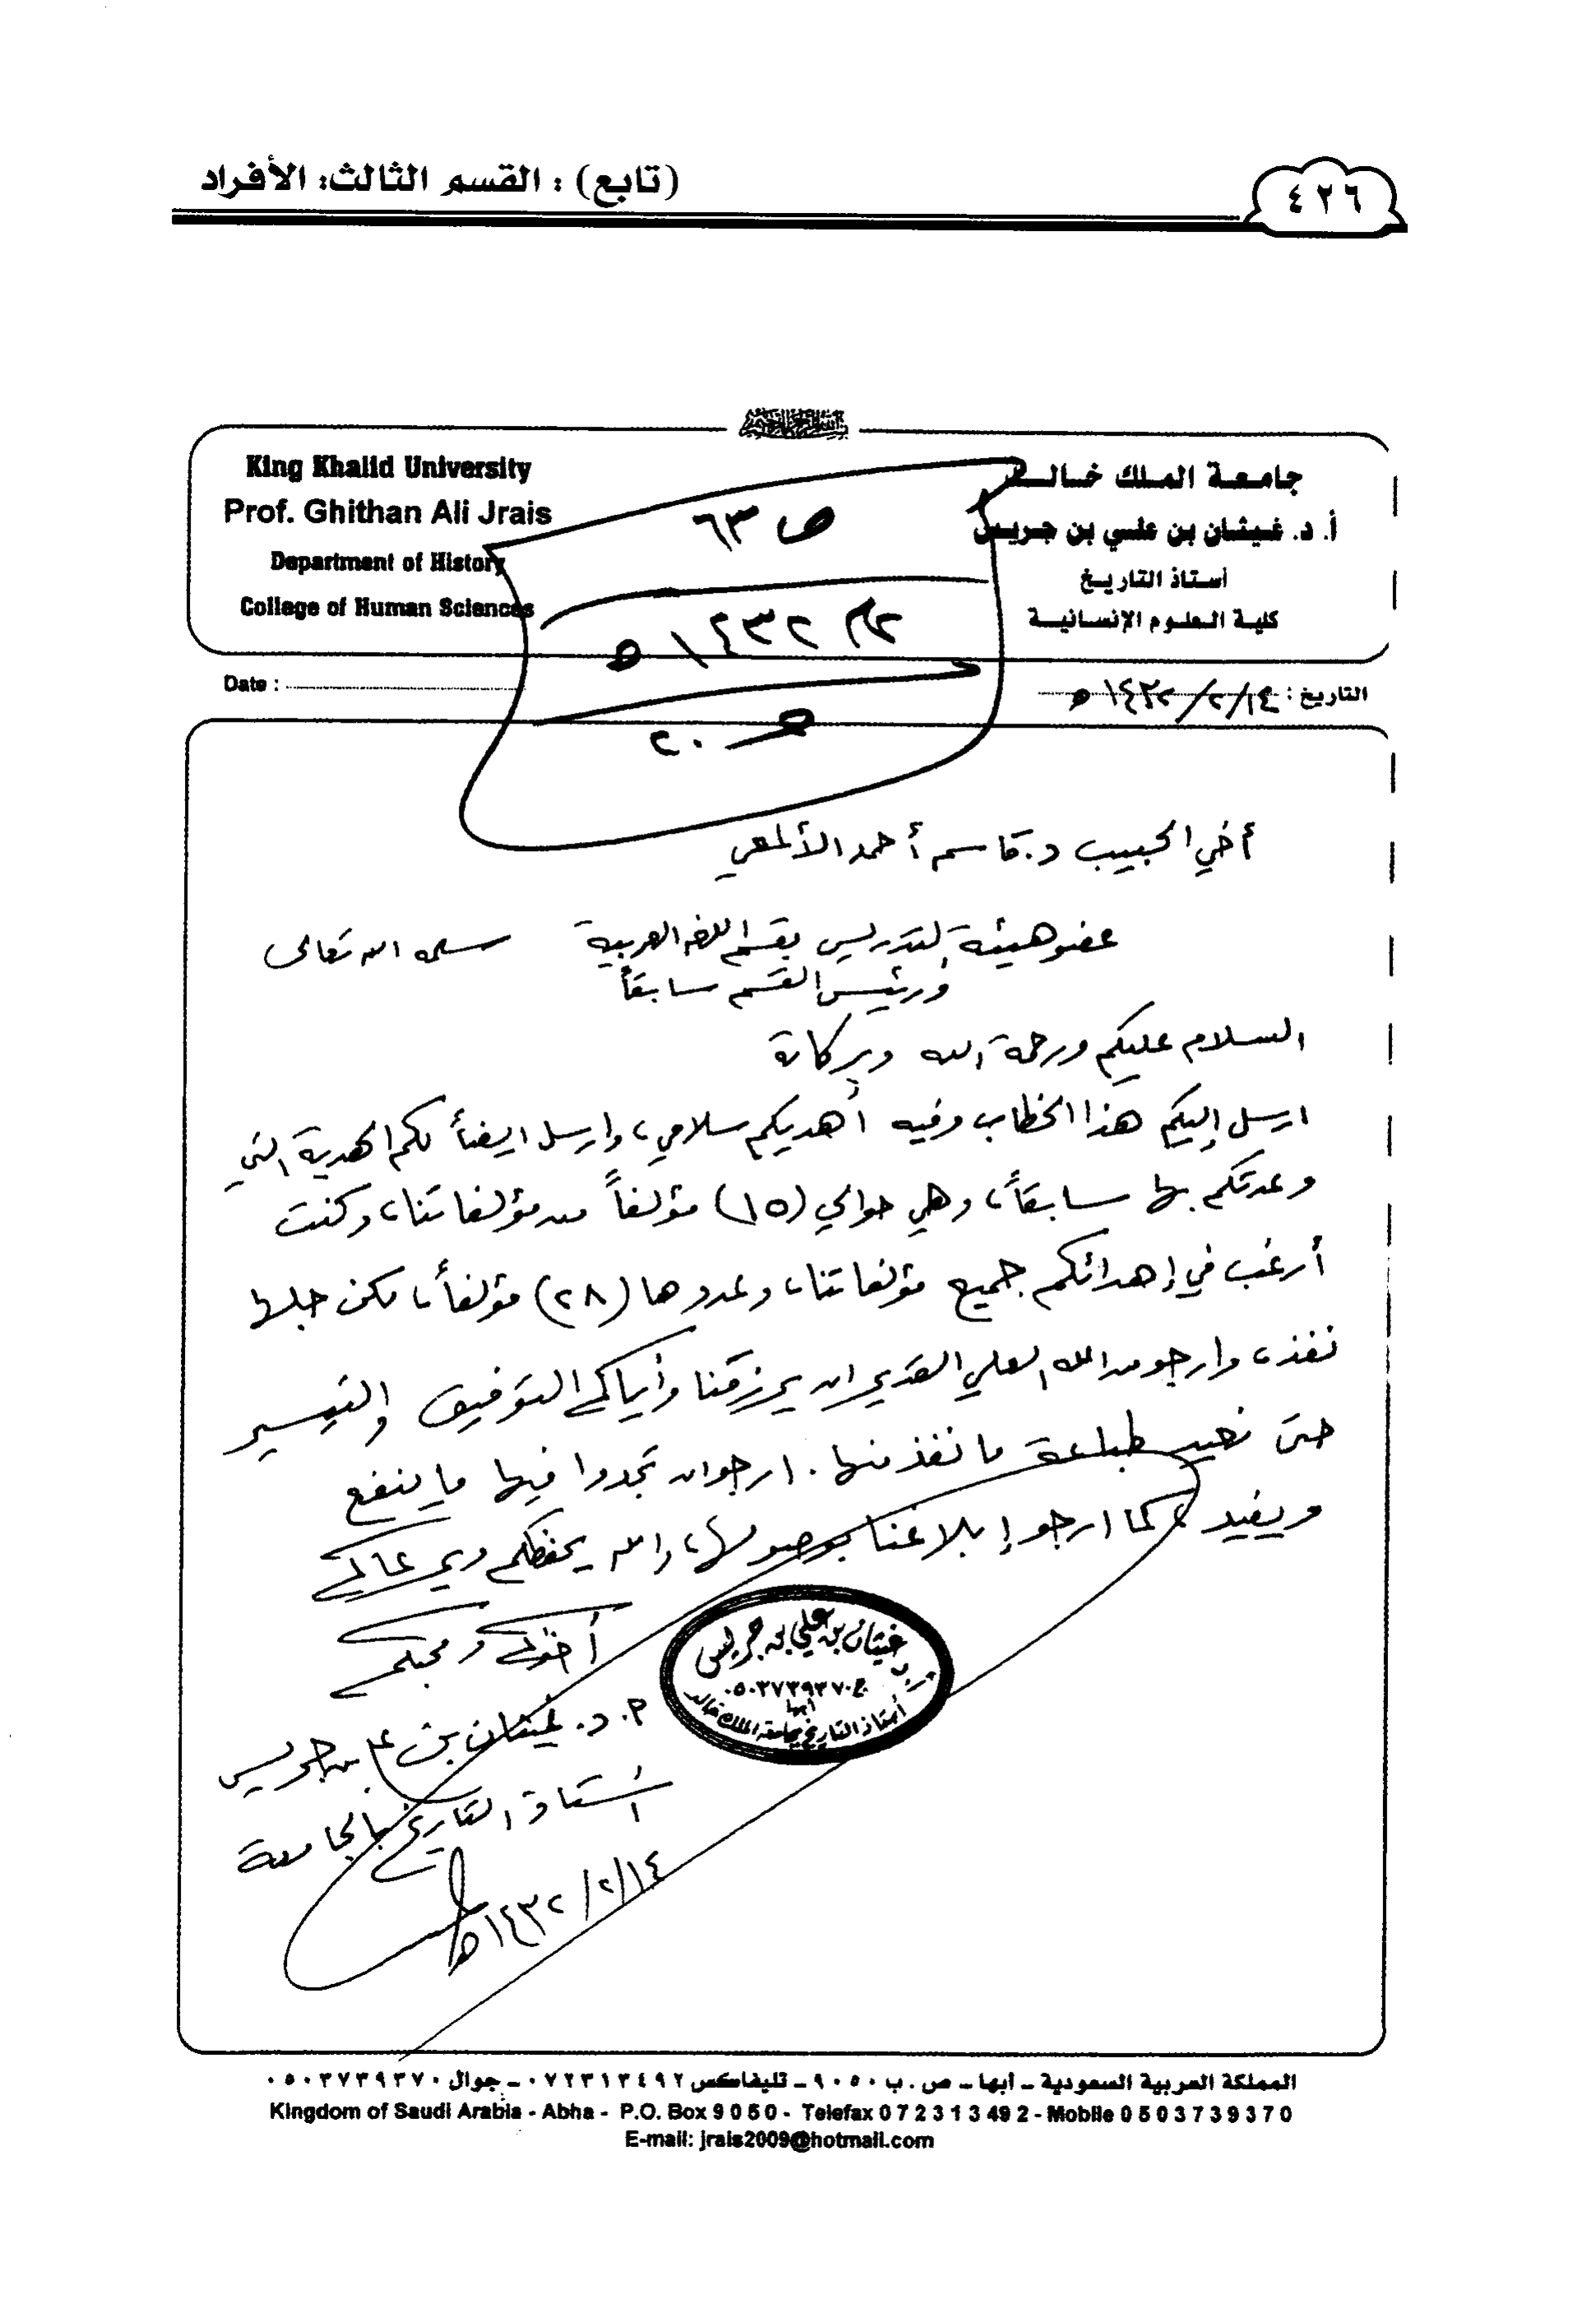 ٤٢٦
(تابع) : القسم الثالث: الأفراد
جامعة الملك خالد
أ. د. غيثان بن علي بن جريس
أستاذ التاريخ
كلية العلوم الإنسانية
King Khalid University
Prof. Ghithan Ali Jrais
Department of History
College of Human Sciences
ص ٦٣
١٤٣٢ هـ
٢٠
التاريخ : ١٤/٢/١٤٣٢ هـ
Date :
أخي الحبيب د. قاسم أحمد الألمعي
عضو هيئة التدريس بقسم اللغة العربية سلمه الله تعالى
ورئيس القسم سابقاً
السلام عليكم ورحمة الله وبركاته
ارسل إليكم هذا الخطاب وفيه أهديكم سلامي، وارسل ايضاً لكم الهدية التي
وعدتكم بها سابقاً، وهي حوالي (١٥) مؤلفاً من مؤلفاتنا، وكنت
أرغب في إهدائكم جميع مؤلفاتنا، وعددها (٢٨) مؤلفاً، لكن جلها
نفذ، وارجو من الله العلي القدير ان يرزقنا وأياكم التوفيق والتيسير
حتى نعيد طباعة ما نفذ منها. ارجو ان تجدوا فيها ما ينفع
ويفيد، كما ارجو إبلاغنا بوصولها، والله يحفظكم ويرعاكم
أخوكم ومحبكم
أ. د. غيثان بن علي بن جريس
أستاذ التاريخ بالجامعة
١٤/٢/١٤٣٢هـ
غيثان بن علي بن جريس
ج ٠٥٠٣٧٣٩٣٧٠
أبها
أستاذ التاريخ بجامعة الملك خالد
المملكة العربية السعودية – أبها – ص. ب ٩٠٥٠ – تليفاكس ٠٧٢٣١٣٤٩٢ – جوال ٠٥٠٣٧٣٩٣٧٠
Kingdom of Saudi Arabia - Abha - P.O. Box 9 0 5 0 - Telefax 0 7 2 3 1 3 49 2 - Mobile 0 5 0 3 7 3 9 3 7 0
E-mail: jrais2009@hotmail.com